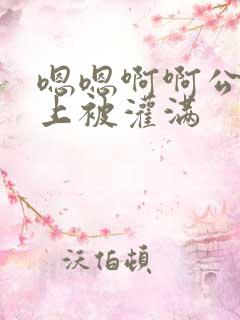 嗯嗯啊啊公
上被灌满
沃伯頓